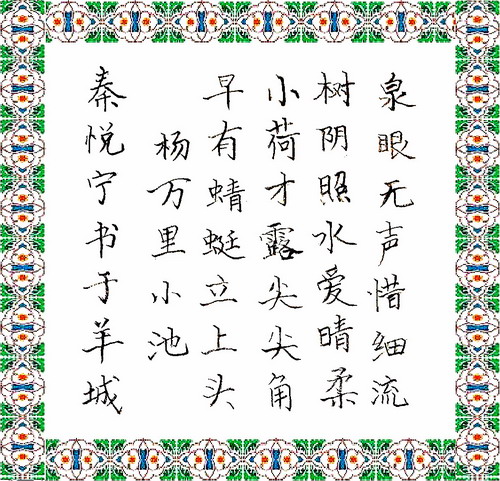 泉眼无声惜细流
树阴照水爱晴柔
小荷才露尖尖角
早有蜻蜓立上头
杨万里小池
秦悦宁书于羊城